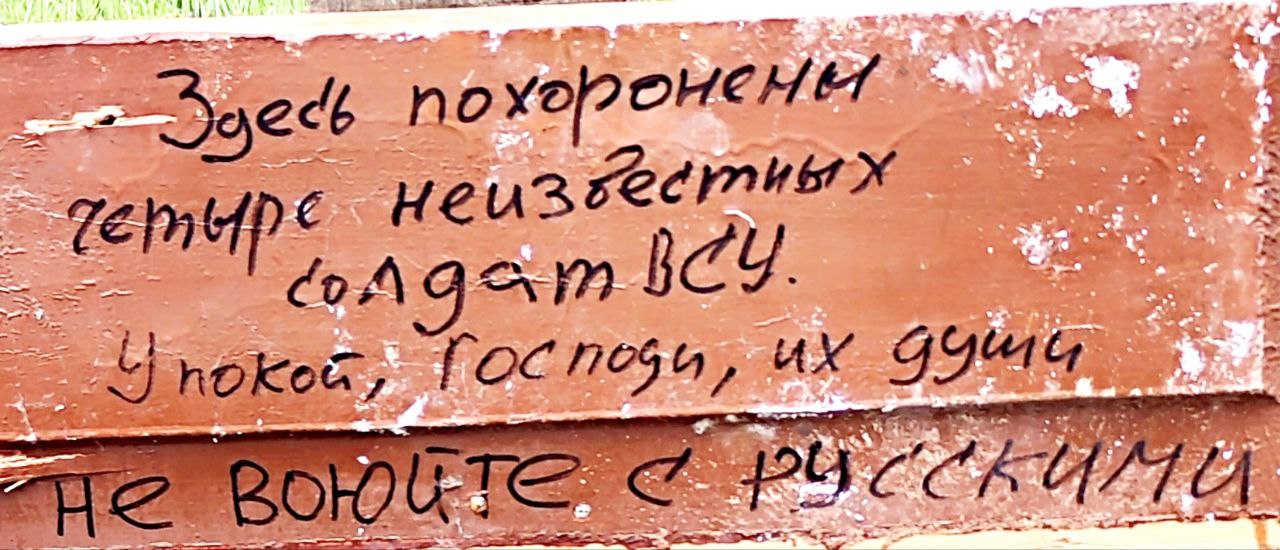 Здесь похоронены
четыре неизвестных
солдат ВСУ.
Упокой, Господи, их души
не воюйте с русскими